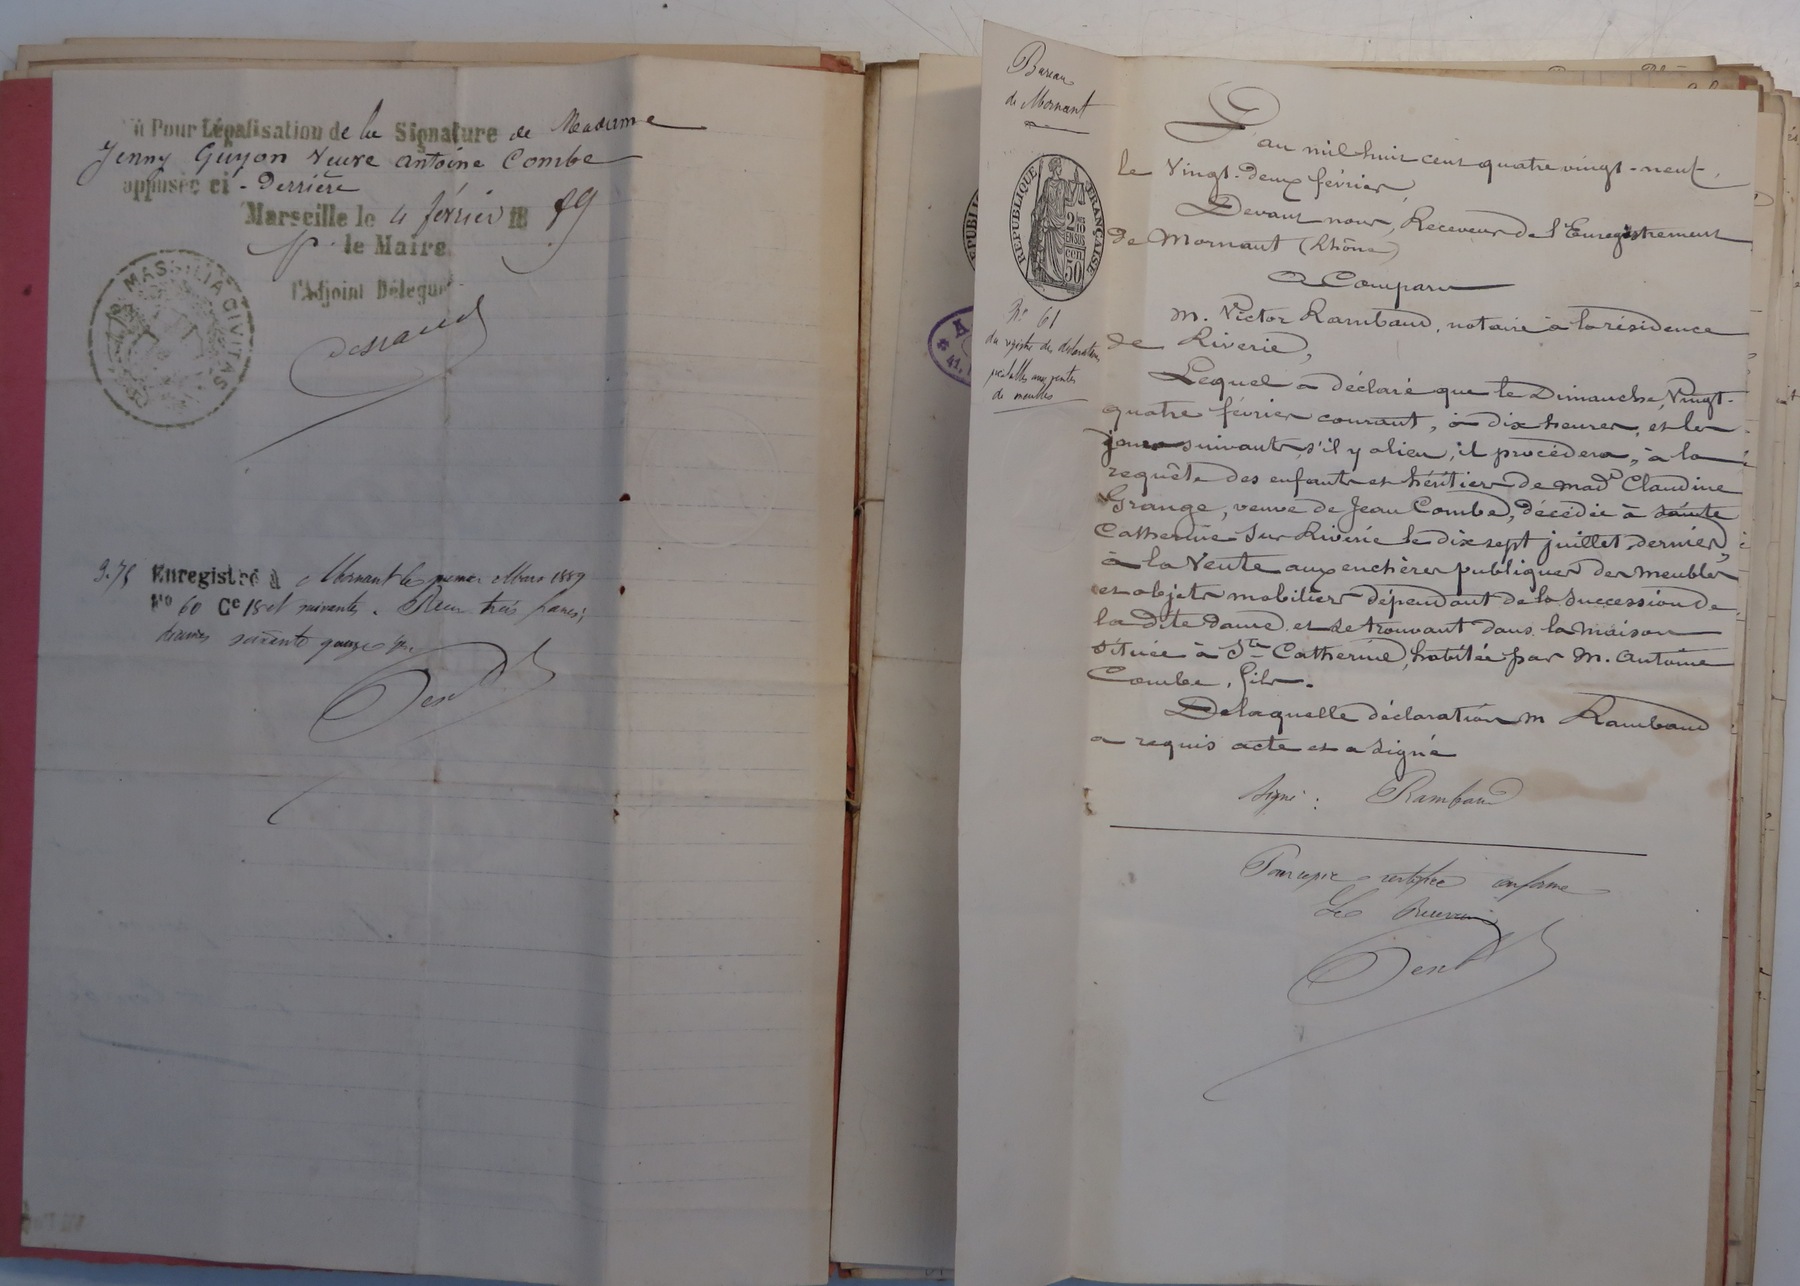 Vu Pour Légalisation de la Signature de Madame
Jenny Guyon Veuve Antoine Combe
apposée ci - Derrière
Marseille le 4 février 18 89
p. le Maire
l'Adjoint Délégué
MASSILIA CIVITAS
3.75 Enregistré à Mornant le premier Mars 1889
No 60 Ce 18 et suivantes. Reçu trois francs;
décimes soixante quinze
Bureau
de Mornant
RÉPUBLIQUE FRANÇAISE
2/10
EN SUS
50
No 61
du registre des déclarations
préalables aux ventes
de meubles
L'an mil huit cent quatre vingt-neuf,
le Vingt-deux février,
Devant nous, Receveur de l'Enregistrement
de Mornant (Rhône)
A Comparu
M. Victor Rambaud, notaire à la résidence
de Riverie,
Lequel a déclaré que le Dimanche, Vingt-
quatre février courant, à dix heures, et les
jours suivants, s'il y a lieu, il procédera, à la
requête des enfants et héritiers de Made Claudine
Grange, veuve de Jean Combe, décédée à Sainte
Catherine sur Riverie le dix sept juillet dernier,
à la Vente aux enchères publiques des meubles
et objets mobiliers dépendant de la Succession de
la dite dame et se trouvant dans la maison
située à Ste Catherine, habitée par M. Antoine
Combe, fils.
De laquelle déclaration M Rambaud
a requis acte et a signé
Signé : Rambaud
Pour copie certifiée conforme
Le Receveur